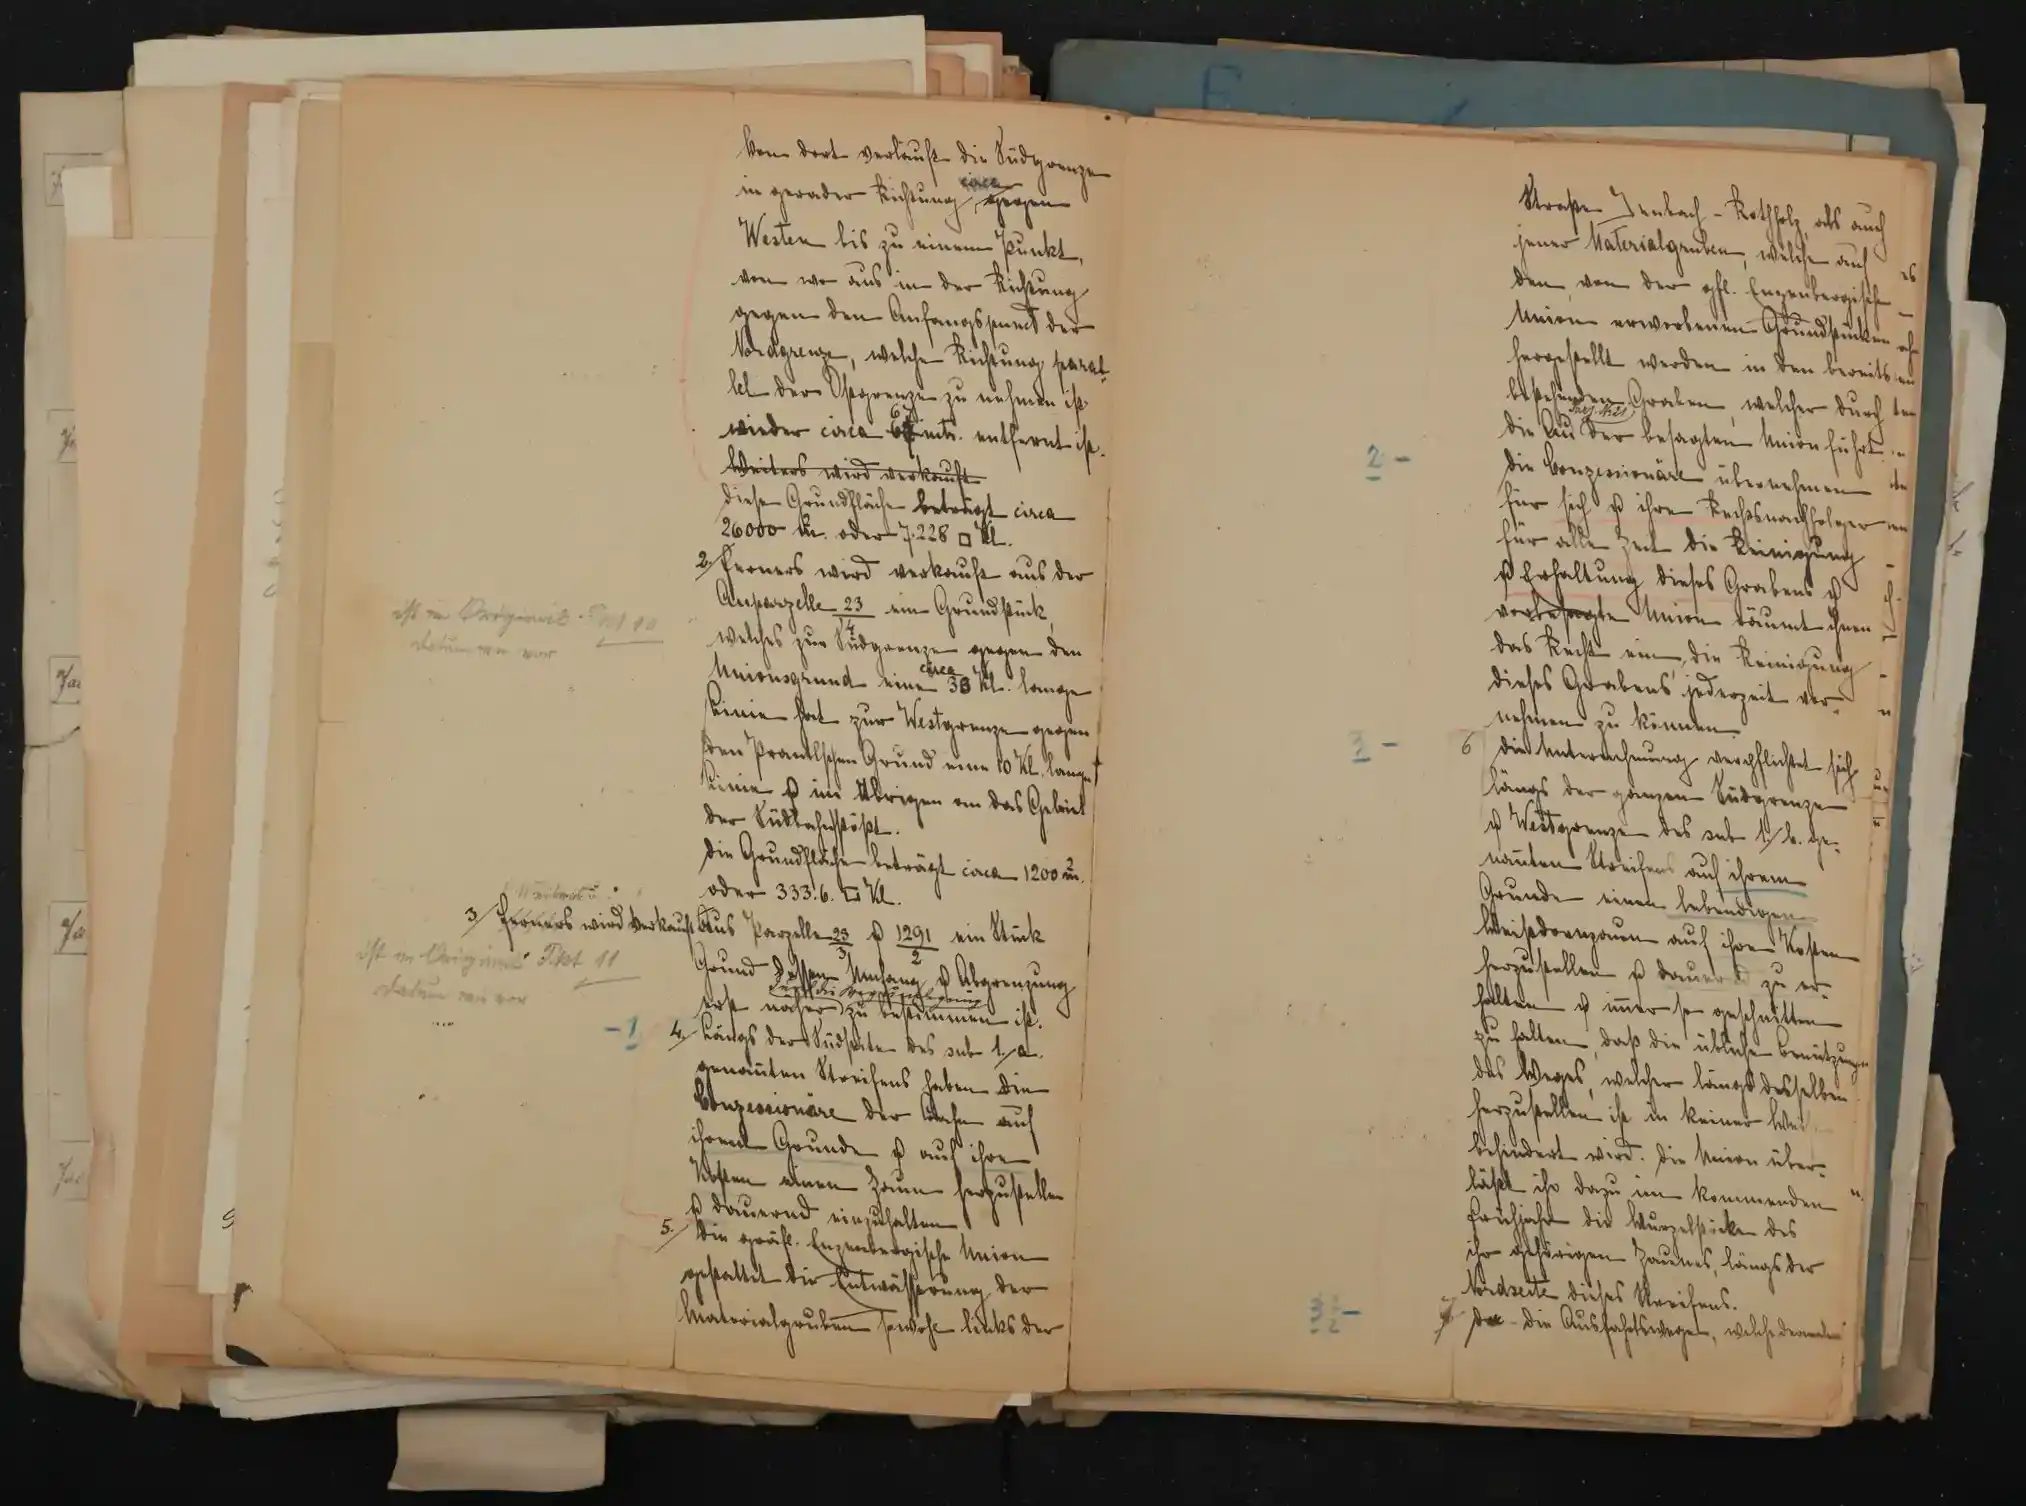 Von dort verlauft die Südgrenze
in gerader Richtung circa gegen
Westen bis zu einem Punkt,
von wo aus in der Richtung
gegen den Anfangspunct der
Nordgrenze, welche Richtung paral-
lel der Ostgrenze zu nehmen ist
wieder circa 67 mtr. entfernt ist.
Weiters wird verkauft
diese Grundfläche beträgt circa
26000 m². oder 7.228 □ Kl.
2./ Ferners wird verkauft aus der
Auparzelle 23/4 ein Grundstück,
welches zur Südgrenze gegen den
Unionsgrund eine circa 38 Kl. lange
Linie hat zur Westgrenze gegen
den Prantlschen Grund eine 10 Kl. lange
Linie & im Übrigen an das Gebiet
der Südbahn stößt.
die Grundfläche beträgt circa 1200 m².
oder 333.6. □ Kl.
3/ Ferners wird verkauft Aus Parzelle 23/3 & 1291/2 ein Stück
Grund dessen Umfang & Abgrenzung
erst näher zu bestimmen ist.
4./ Längs der Südseite des sub 1./a.
genannten Streifens haben die
Conzessionäre der Bahn auf
ihrem Grunde & auf ihre
Kosten einen Zaun herzustellen
& dauernd einzuhalten
5./ Die gräfl. Enzenbergische Union
gestattet die Entwässerung der
Materialgruben sowohl links der
ist im Original Pkt 10
datum wie vor
Weiters
ist im Original Pkt 11
datum wie vor
- 1
Straße Jenbach - Rothholz, als auch
jener Materialgruben, welche auf
den, von der gfl. Enzenbergische
Union erworbenen Grundstücken
hergestellt werden in den bereits
bestehenden Graben, welcher durch
die Au der besagten Union führt.
die Conzessionäre übernehmen
für sich & ihre Rechtsnachfolger
für alle Zeit die Reinigung
& Erhaltung dieses Grabens &
vorbesagte Union räumt ihnen
das Recht ein, die Reinigung
dieses Grabens jederzeit vor-
nehmen zu können.
6 die Unternehmung verpflichtet sich
längs der ganzen Südgrenze
& Westgrenze des sub 1./b. ge-
nannten Streifens auf ihrem
Grunde einen lebendigen
Weißdornzaun auf ihre Kosten
herzustellen & dauernd zu er-
halten & immer so geschnitten
zu halten, daß die übliche Benützung
des Weges, welcher längs desselben
herzustellen ist in keiner
behindert wird. Die Union über-
läßt ihr dazu im kommenden
Frühjahr die Wurzelstöcke des
ihr gehörigen Zaunes, längs der
Nordseite dieses Streifens.
7. die Ausfahrtswege, welche
2 -
3 -
3½ -